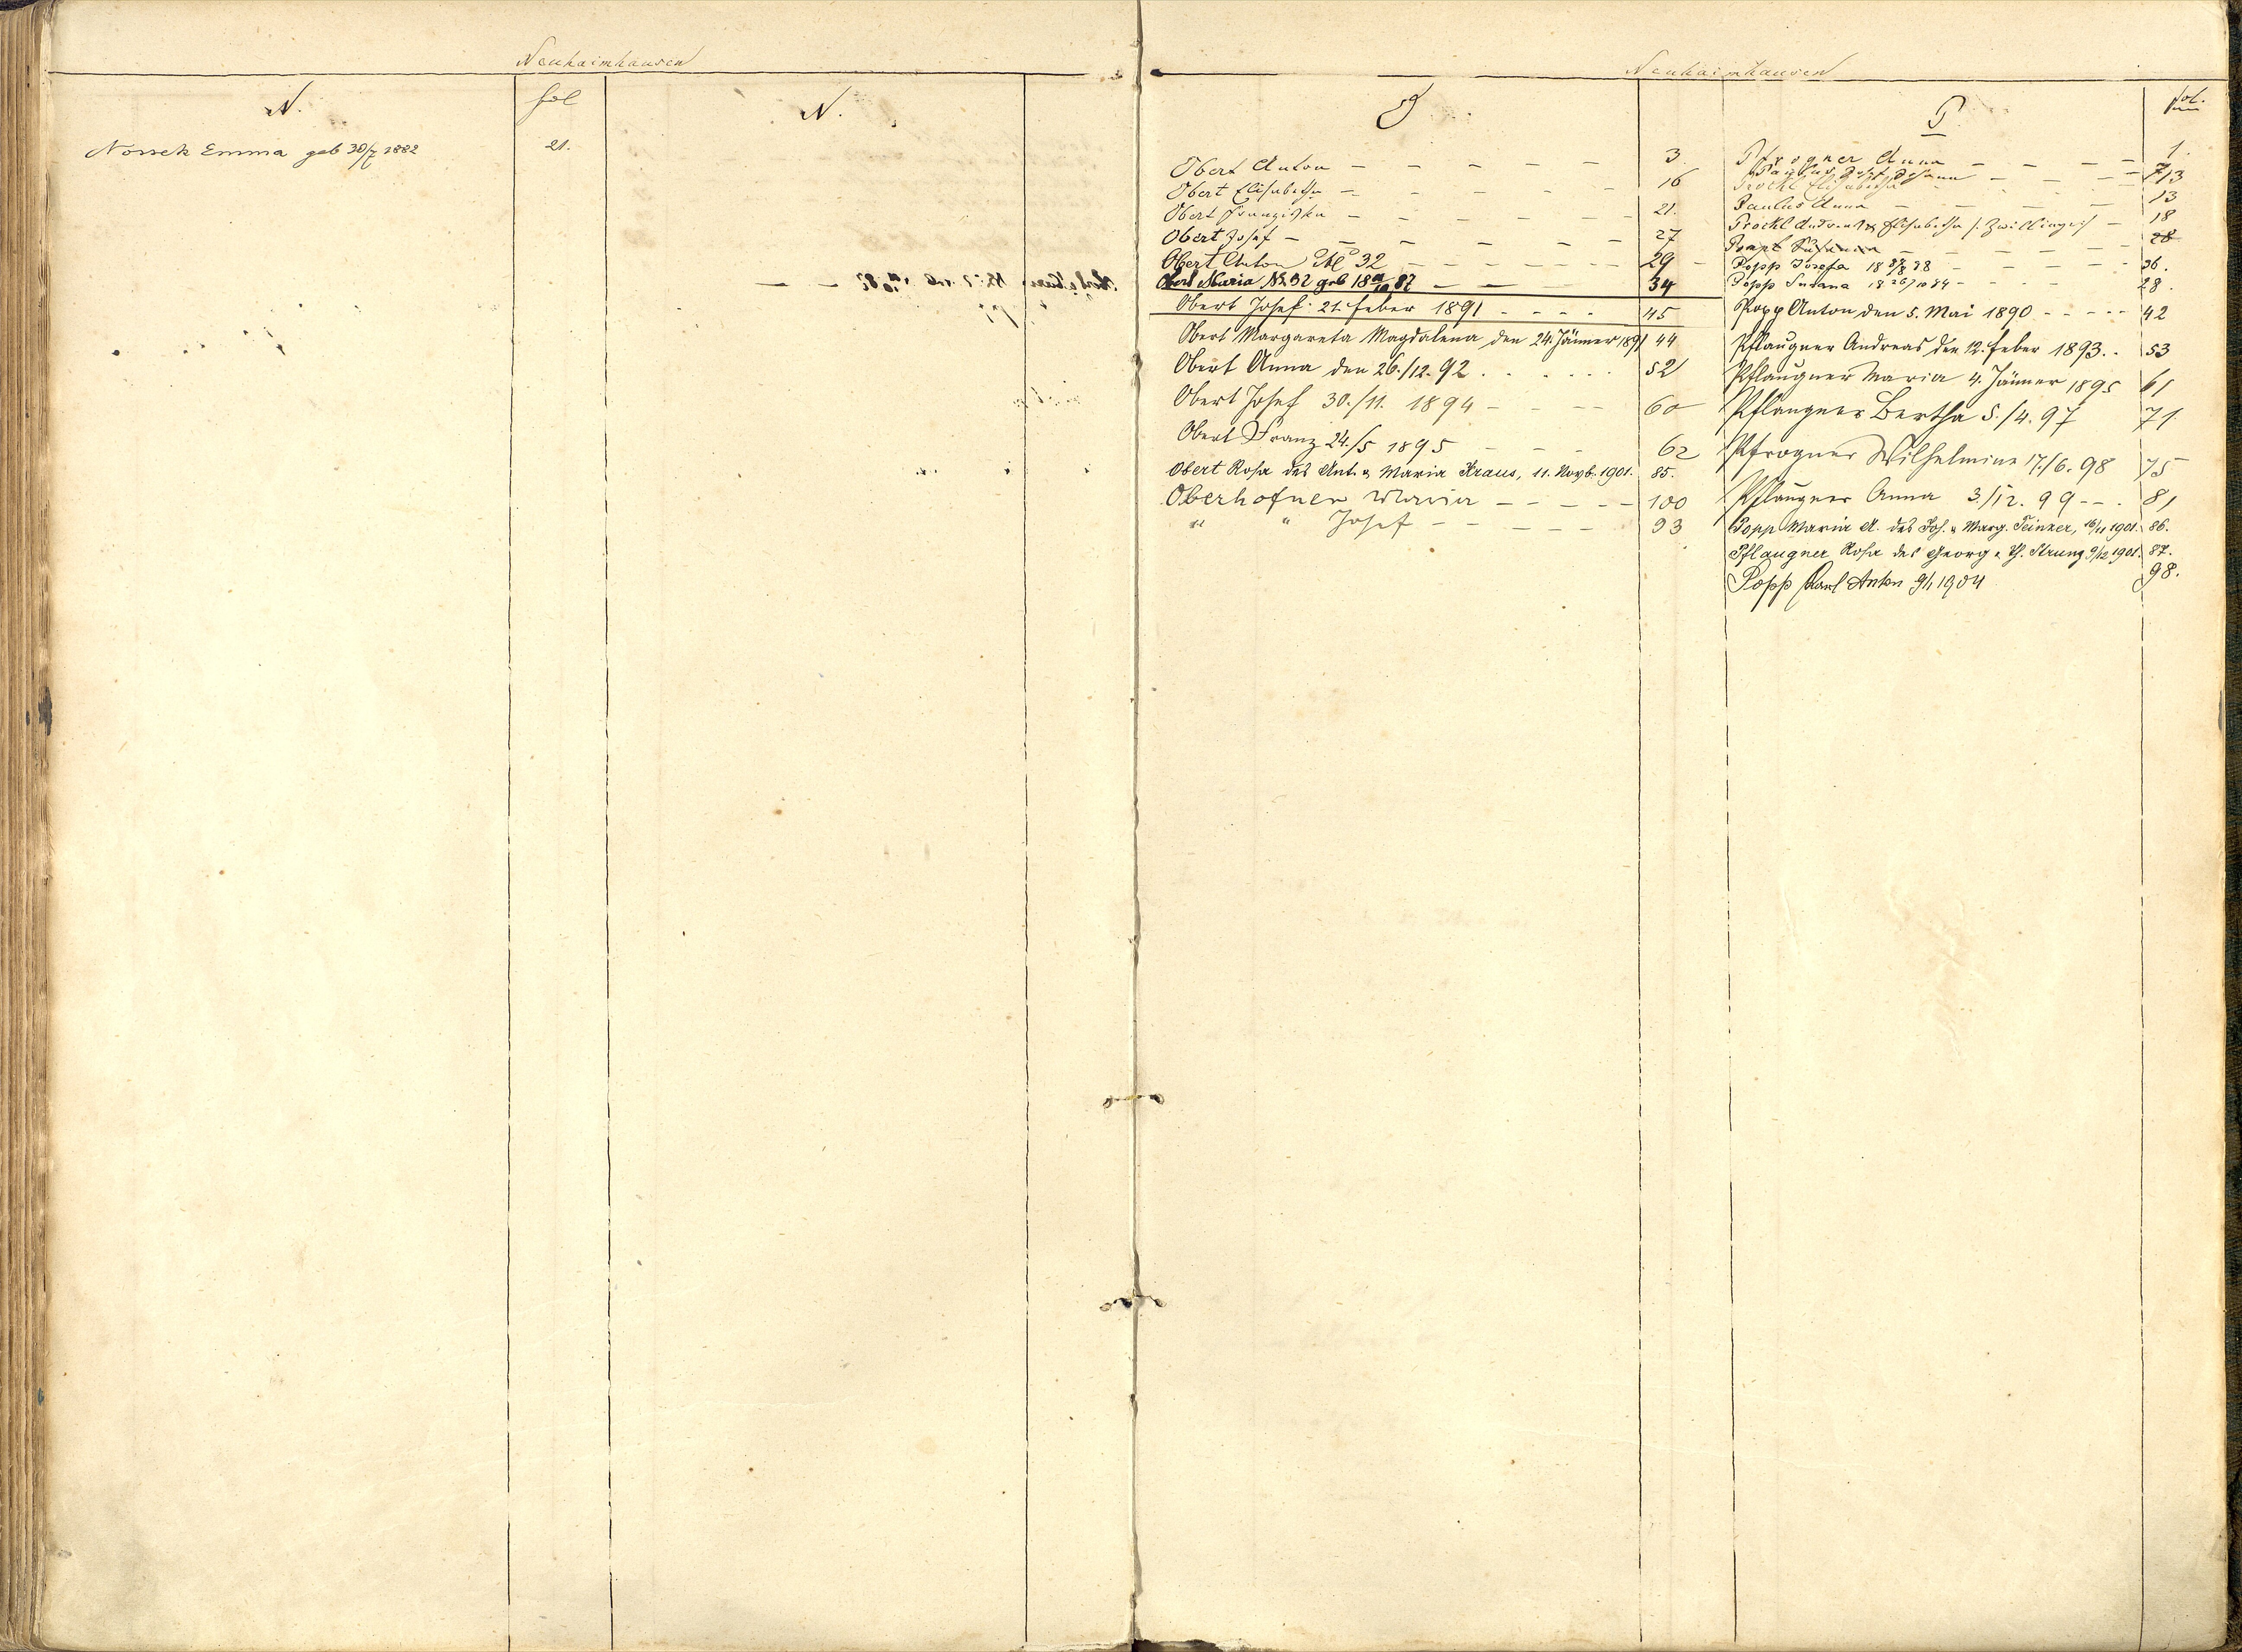 Neuhaimhausen
N.
fol
N.
Nossek Emma geb 30/7 1882
21.
Neuhaimhausen
O
Obert Anton – – – – – 3.
Obert Elisabetha – – – – – 16
Obert Franziska – – – – – 21.
Obert Josef – – – – – 27
Obert Anton No 32 – – – – – – 29
Obert Maria No 32 geb 18 /10 87 – – – 34
Obert Josef: 21. Feber 1891 - - - - 45
Obert Margareta Magdalena den 24. Jänner 1891 44
Obert Anna den 26./12. 92 . . . . . . 52
Obert Josef 30./11. 1894 - - - - 60
Obert Franz 24./5 1895 - - - 62
Obert Rosa des Ant. u Maria Kraus, 11. Novb. 1901. 85.
Oberhofner Maria – – – – – 100
" " Josef – – – – – 93
P
fol.
Pfrogner Anna – – – – 1.
Paulus Josef Johann – – – – 13
Prockl Elisabetha 7
Paulus Anna – – – – 13
Prockl Andreas & Elisabetha /: Zwillinge :/ – 18
Popp Susanna – – – – 28
Popp Josefa 18 /8 88 – – – – 36.
Popp Susana 18 26/10 84 - - - - 28.
Popp Anton den 5. Mai 1890 - - - - - 42
Pflaugner Andreas den 12. Feber 1893. . 53
Pflaugner Maria 4. Jänner 1895 61
Pflaugner Bertha 5./4. 97 71
Pfrogner Wilhelmine 17./6. 98 75
Pflaugner Anna 3./12. 99 - - . 81
Popp Maria A. des Joh. u Marg. Teinzer, 16/11 1901. 86.
Pflaugner Rosa des Georg u Th. Strunz 9/12 1901. 87.
Popp Karl Anton 9/1 1904 98.